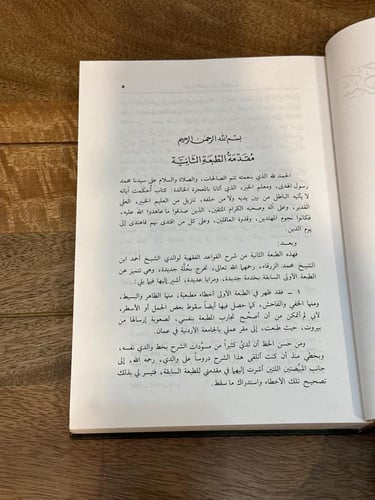 ٥
بسم الله الرحمن الرحيم
مقدمة الطبعة الثانية
الحمد لله الذي بنعمته تتم الصالحات، والصلاة والسلام على سيدنا محمد
رسول الهدى، ومعلم الخير، الذي أتانا بالمعجزة الخالدة: كتاب أُحكمت آياته
لا يأتيه الباطل من بين يديه ولا من خلفه، تنزيل من العليم الخبير، العلي
القدير، وعلى آله وصحبه الكرام المتقين، الذين صدقوا ما عاهدوا الله عليه،
فكانوا نجوم المهتدين، وقدوة العاقلين، وعلى كل من اقتدى بهم فاهتدى إلى
يوم الدين.
وبعد:
فهذه الطبعة الثانية من شرح القواعد الفقهية لوالدي الشيخ أحمد ابن
الشيخ محمد الزرقاء، رحمهما الله تعالى، تخرج بحلّة جديدة، وهي تتميز عن
الطبعة الأولى السابقة بخدمة جديدة، ومزايا عديدة، أشير إليها فيما يلي:
١ ــ فقد ظهر في الطبعة الأولى أخطاء مطبعية، منها الظاهر والبسيط،
ومنها الخفي والفاحش، كما حصل فيها أيضاً سقوط بعض الجمل أو الأسطر،
لأني لم أتمكن من أن أصحح تجارب الطبعة بنفسي، لصعوبة إرسالها من
بيروت، حيث طبعت، إلى مقر عملي بالجامعة الأردنية في عمان.
ومن حسن الحظ أن لديّ كثيراً من مسوّدات الشرح بخط والدي نفسه،
وبخطي منذ أن كنت أتلقى هذا الشرح دروساً على والدي، رحمه الله، إلى
جانب المبيّضتين اللتين أشرت إليهما في مقدمتي للطبعة السابقة، فتيسر لي بذلك
تصحيح تلك الأخطاء واستدراك ما سقط.